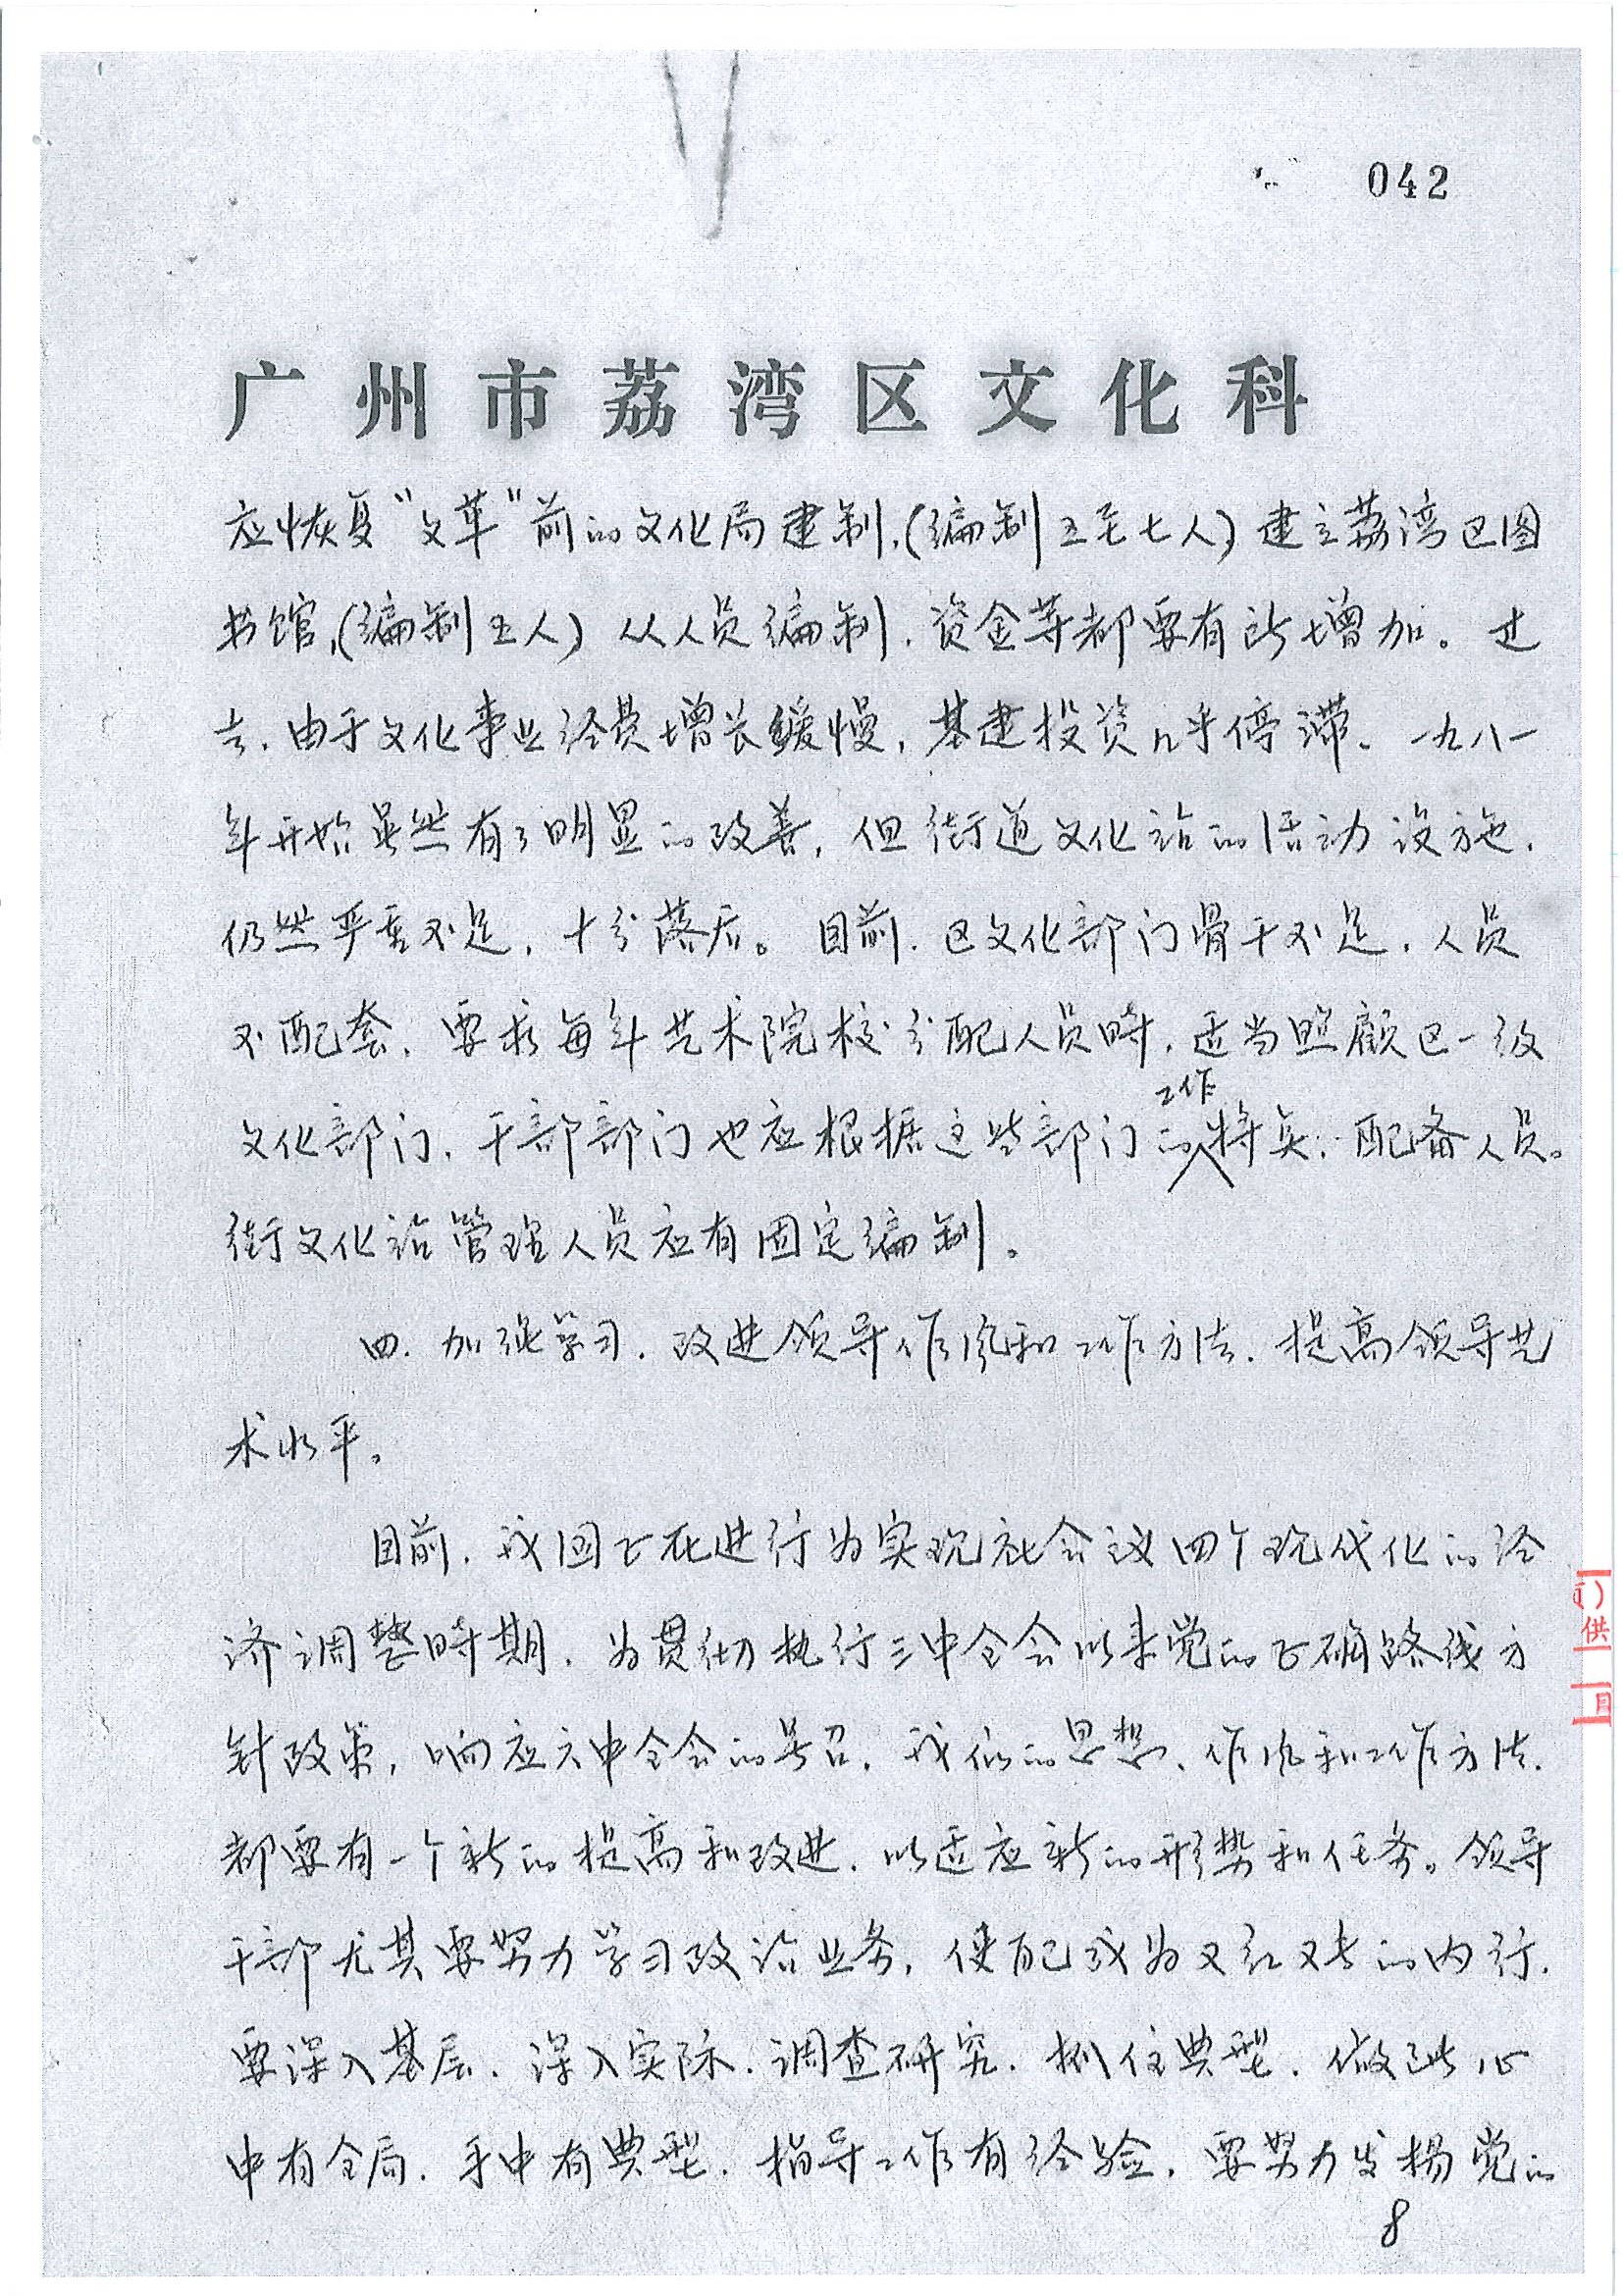 042
广州市荔湾区文化科
应恢复“文革”前的文化局建制，(编制五至七人）建立荔湾区图
书馆，(编制五人）从人员编制、资金等都要有所增加。过
去，由于文化事业经费增长缓慢，基建投资几乎停滞。一九八一
年开始虽然有了明显的改善，但街道文化站的活动设施，
仍然严重不足，十分落后。目前，区文化部门骨干不足，人员
不配套，要求每年艺术院校分配人员时，适当照顾区一级
文化部门，干部部门也应根据这些部门的工作特点，配备人员。
街文化站管理人员应有固定编制。
四、加强学习，改进领导作风和工作方法，提高领导艺
术水平。
目前，我国正在进行为实现社会议四个现代化的经
济调整时期，为贯彻执行三中全会以来党的正确路线方
针政策，响应六中全会的号召，我们的思想、作风和工作方法，
都要有一个新的提高和改进，以适应新的形势和任务。领导
干部尤其要努力学习政治业务，使自己成为又红又专的内行，
要深入基层、深入实际、调查研究、抓住典型、做到心
中有全局，手中有典型，指导工作有经验，要努力发扬党的
8
供
日